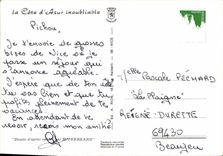 La Côte d'Azur inoubliable
Pichou,
Je t'envoie de grosses
bises de Nice où je
fais un séjour qui
s'annonce agréable.
J'espère que de ton côté
tu vas bien et que tu
profites pleinement de tes
vacances.
En attendant de te
revoir, reçois mon amitié
Melle Pascale PECHARD
La Plaigne
RÉGNIÉ-DURETTE
69430
Beaujeu